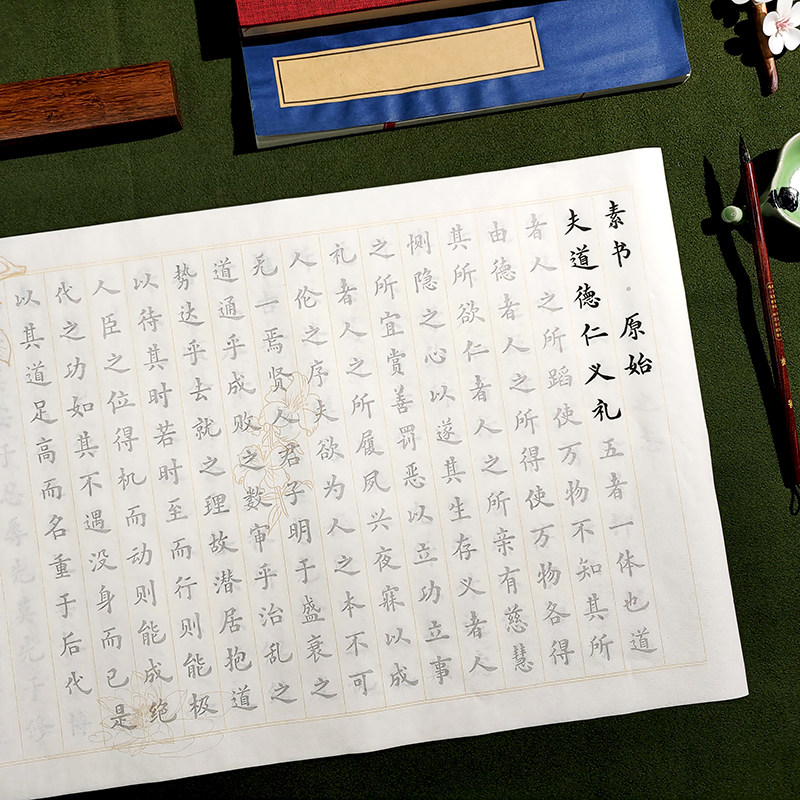 素书·原始
夫道德仁义礼五者一体也道
者人之所蹈使万物不知其所
由德者人之所得使万物各得
其所欲仁者人之所亲有慈慧
恻隐之心以遂其生存义者人
之所宜赏善罚恶以立功立事
礼者人之所履夙兴夜寐以成
人伦之序夫欲为人之本不可
无一焉贤人君子明于盛衰之
道通乎成败之数审乎治乱之
势达乎去就之理故潜居抱道
以待其时若时至而行则能极
人臣之位得机而动则能成绝
代之功如其不遇没身而已是
以其道足高而名重于后代